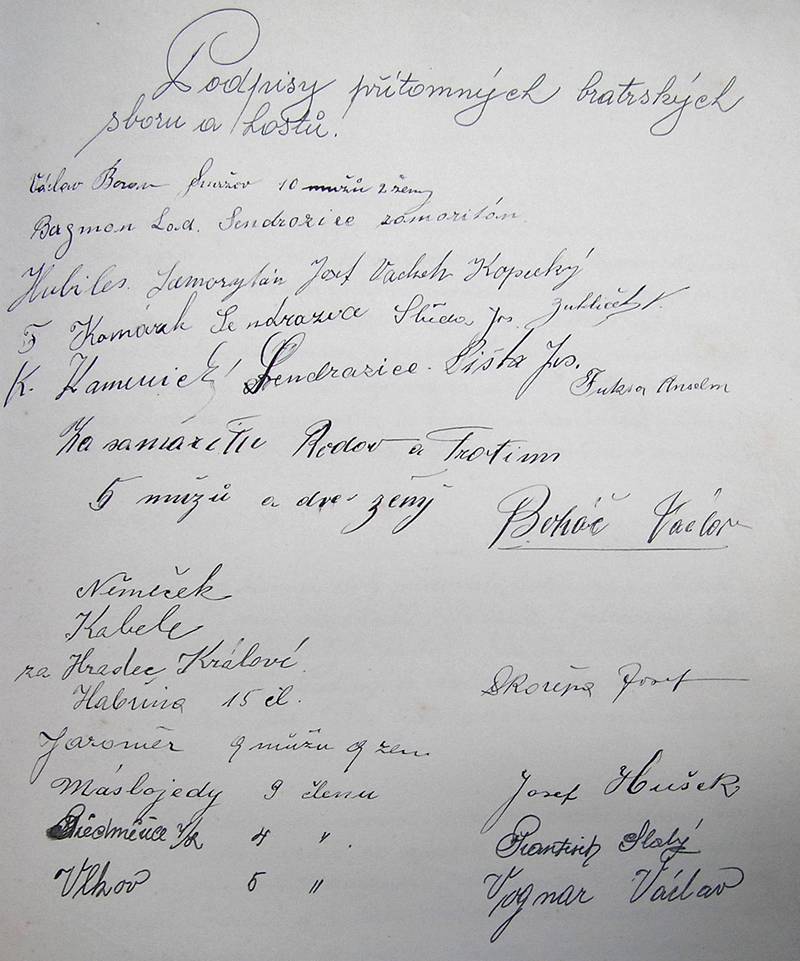 Podpisy přítomných bratrských
sboru a hostů.
Václav Beran 10 mužů 2 ženy
Bergman Lad. Sendražice zamoritán
Hubiles. Samorytán Josef Vachek Kopecký
F Komárek Sendrazice Slída Jos.
K. Kamenický Sendrazice. Lišta Jos.
Fuksa Anselm
Za samaritu Rodov a Trotinu
5 mužů a dvě ženy
Boháč Václav
Němeček
Kabele
za Hradec Králové.
Habřina 15 čl. Skořepa Josef
Jaroměr 9 mužu 9 žen
Máslojedy 9 členu Josef Hušek
Předměřice 4 〃. František Slabý
Vlkov 5 〃 Vognar Václav